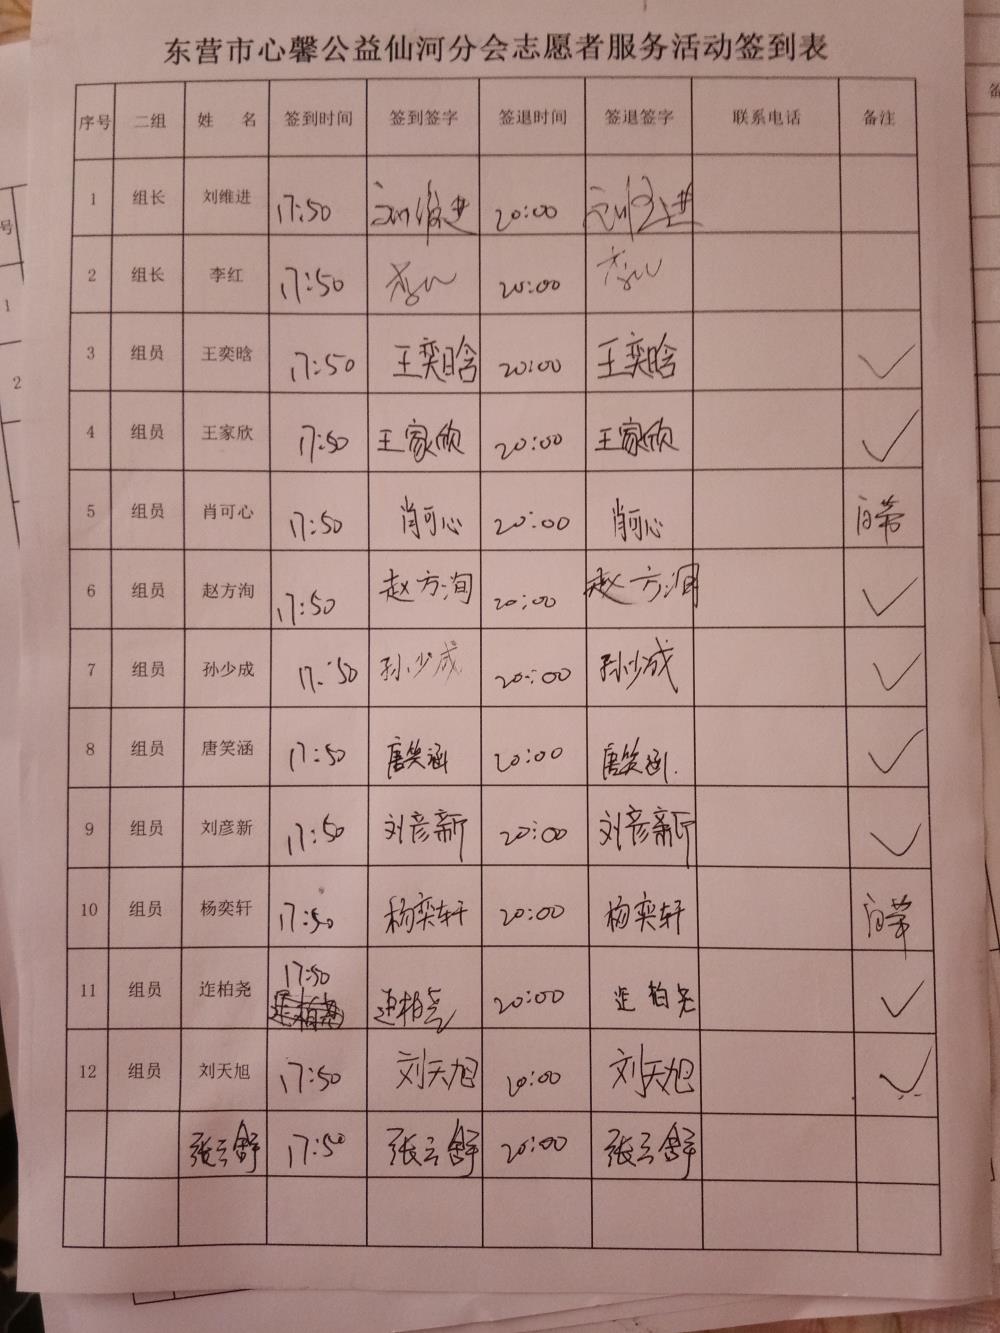 东营市心馨公益仙河分会志愿者服务活动签到表
序号 二组 姓 名 签到时间 签到签字 签退时间 签退签字 联系电话 备注
1 组长 刘维进 17:50 刘维进 20:00 刘维进
2 组长 李红 17:50 李红 20:00 李红
3 组员 王奕晗 17:50 王奕晗 20:00 王奕晗 ✓
4 组员 王家欣 17:50 王家欣 20:00 王家欣 ✓
5 组员 肖可心 17:50 肖可心 20:00 肖可心 自带
6 组员 赵方洵 17:50 赵方洵 20:00 赵方洵 ✓
7 组员 孙少成 17:50 孙少成 20:00 孙少成 ✓
8 组员 唐笑涵 17:50 唐笑涵 20:00 唐笑涵 ✓
9 组员 刘彦新 17:50 刘彦新 20:00 刘彦新 ✓
10 组员 杨奕轩 17:50 杨奕轩 20:00 杨奕轩 自带
11 组员 迮柏尧 17:50 迮柏尧 20:00 迮柏尧 ✓
12 组员 刘天旭 17:50 刘天旭 20:00 刘天旭 ✓
张云舒 17:50 张云舒 20:00 张云舒